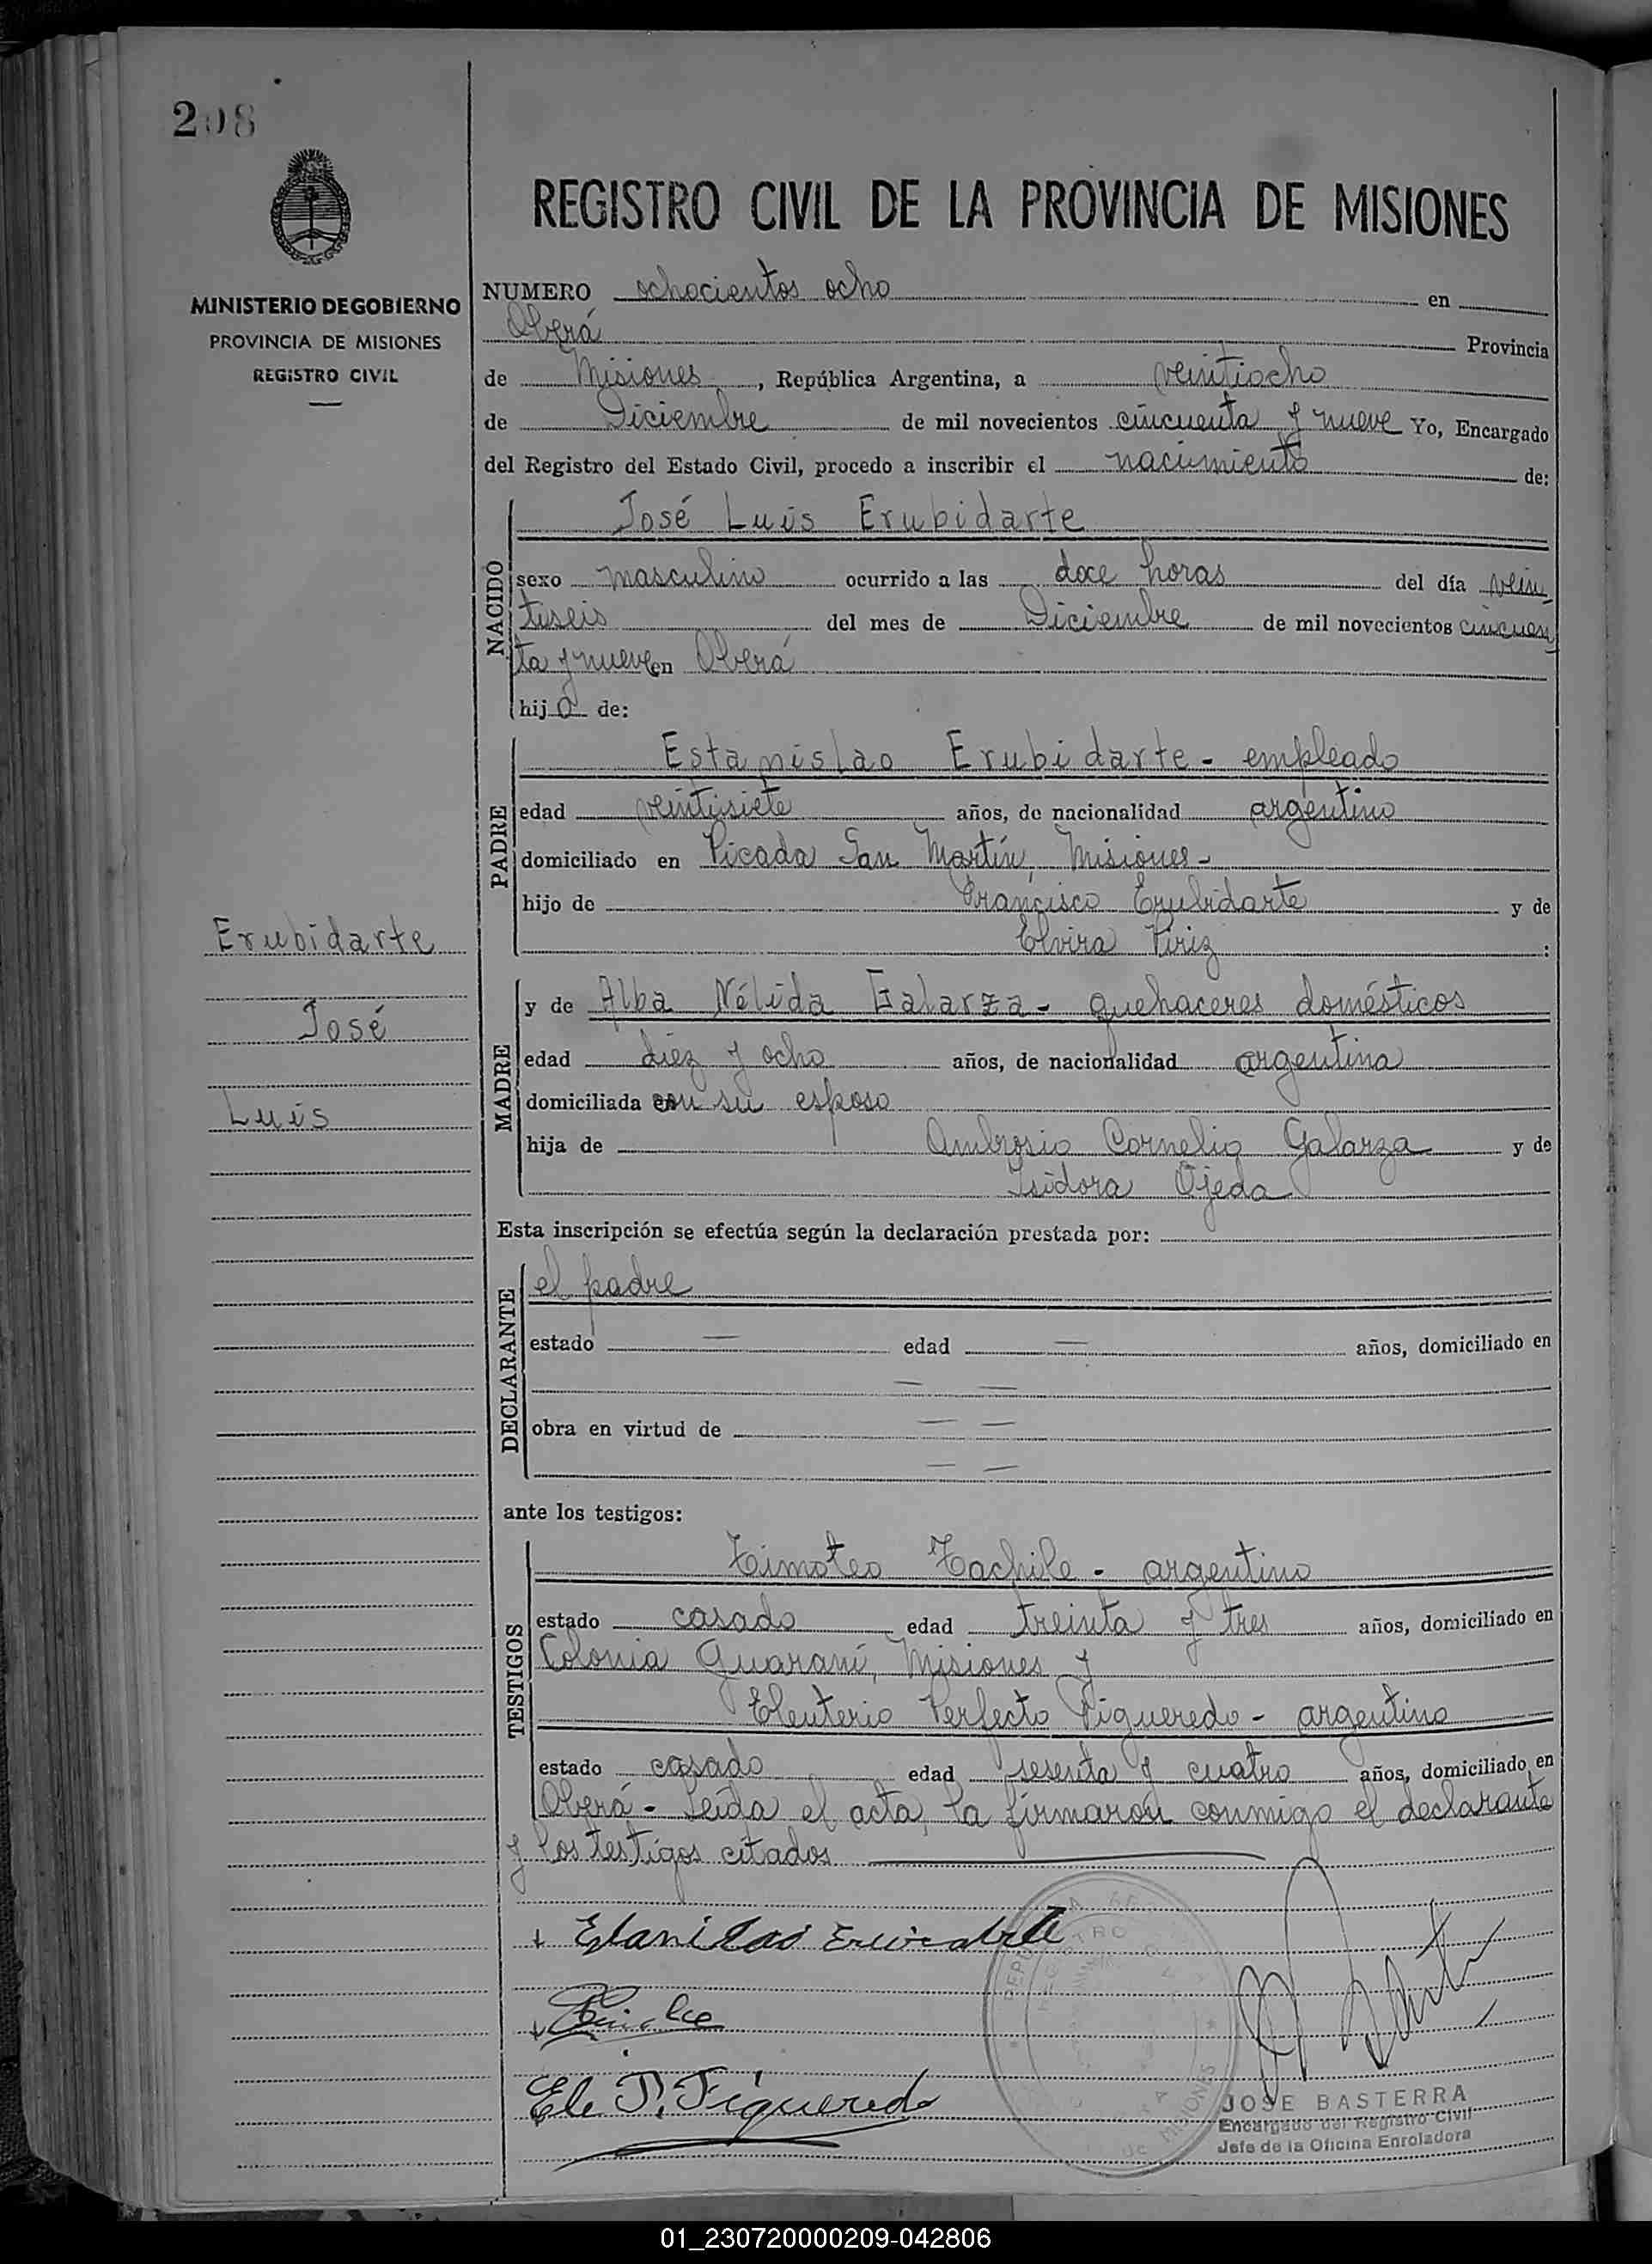 208
MINISTERIO DE GOBIERNO
PROVINCIA DE MISIONES
REGISTRO CIVIL
REGISTRO CIVIL DE LA PROVINCIA DE MISIONES
NUMERO ochocientos ocho en
Oberá Provincia
de Misiones, República Argentina, a veintiocho
de Diciembre de mil novecientos cincuenta y nueve Yo, Encargado
del Registro del Estado Civil, procedo a inscribir el nacimiento de:
NACIDO
José Luis Erubidarte
sexo masculino ocurrido a las doce horas del día vein
tiseis del mes de Diciembre de mil novecientos cincuen
ta y nueve en Oberá
hijo de:
PADRE
Estanislao Erubidarte - empleado
edad veintisiete años, de nacionalidad argentino
domiciliado en Picada San Martín, Misiones-
hijo de Francisco Erubidarte y de
Elvira Piriz:
Erubidarte
José
Luis
MADRE
y de Alba Nélida Galarza - quehaceres domésticos
edad diez y ocho años, de nacionalidad argentina
domiciliada con su esposo
hija de Ambrosio Cornelio Galarza y de
Isidora Ojeda
Esta inscripción se efectúa según la declaración prestada por:
DECLARANTE
el padre
estado — edad — años, domiciliado en
— —
obra en virtud de — —
— —
ante los testigos:
TESTIGOS
Timoteo Tachile - argentino
estado casado edad treinta y tres años, domiciliado en
Colonia Guaraní, Misiones y
Eleuterio Perfecto Figueredo - argentino
estado casado edad sesenta y cuatro años, domiciliado en
Oberá - Leída el acta, la firmaron conmigo el declarante
y los testigos citados
Ele P. Figueredo
JOSE BASTERRA
Encargado del Registro Civil
Jefe de la Oficina Enroladora
01_230720000209-042806